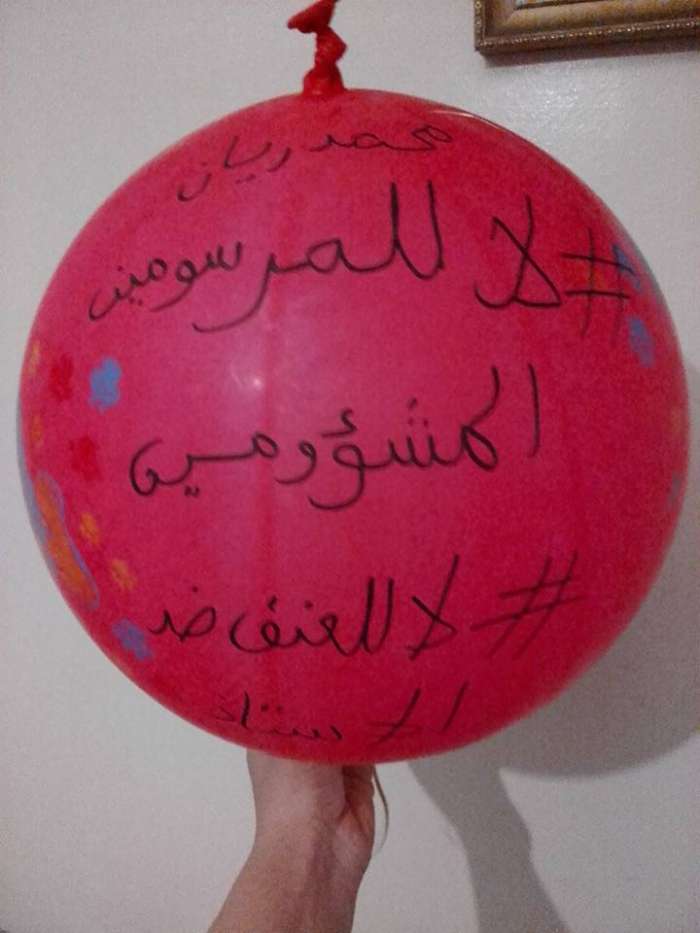 محمد ريان
#لا للمرسومين
المشؤومين
#لا للعنف ضد
الاستاذ